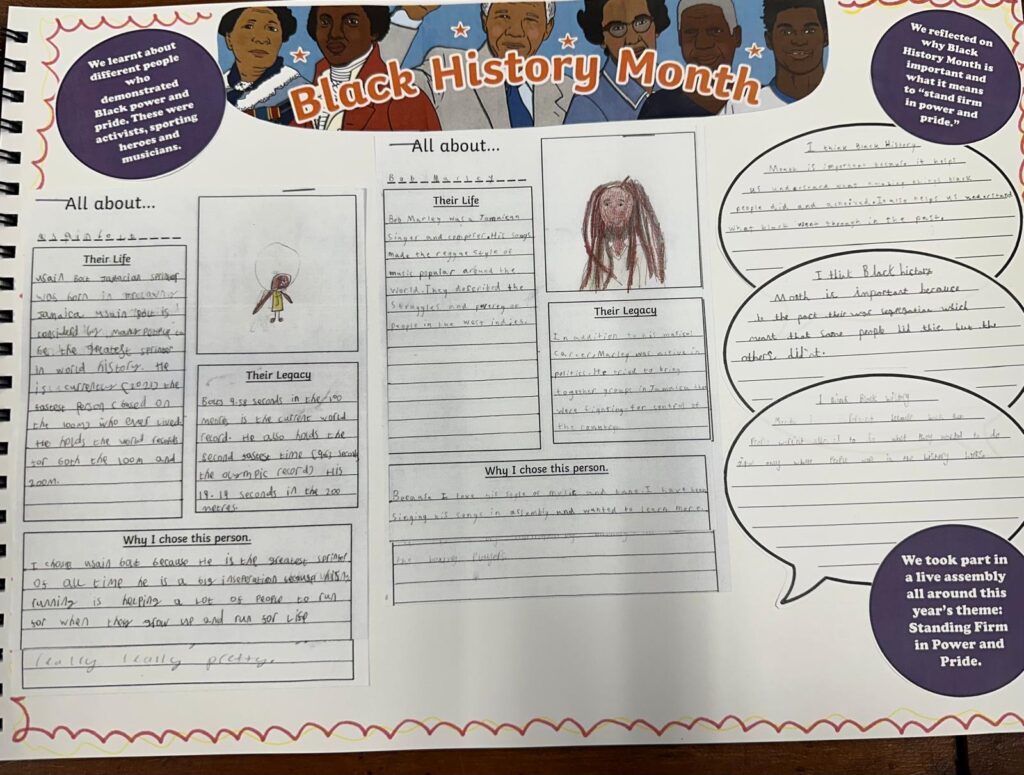 We learnt about
different people
who
demonstrated
Black power and
pride. These were
activists, sporting
heroes and
musicians.
Black History Month
We reflected on
why Black
History Month is
important and
what it means
to "stand firm
in power and
pride."
All about...
Their Life
usain bolt Jamacian
was born in
Jamaica usain Bolt is
considerd by many people
be the greatest
in world history. He
is currently (2021) the
fastest person (based on
the 100m) who ever lived
He holds the world records
for both the 100m and
200m.
Their Legacy
9.58 seconds in the 100
metres is the current world
record. He also holds the
second fastest time (9.63
the olympic record) His
19.19 seconds in the 200
metres.
Why I chose this person.
I chose usain bolt because He is the greatest
of all time he is a big inseperation because
running is helping a lot of people to run
for when they grow up and run for life
really really pretty.
All about...
Bob Marley
Their Life
Bob Marley was a Jamaican
singer and composer. His songs
made the reggae style of
music popular around the
world. They described the
struggles and
people in the west indies.
Their Legacy
In addition to his musical
career, Marley was active in
politics. He tried to bring
together groups in Jamaica
were fighting for control of
the country.
Why I chose this person.
Because I love his style of music and tune. I have been
singing his songs in assembly and wanted to learn more.
the players
I think Black History
Month is important because it helps
us understand what black
people did and achieved. It also helps us understand
what black went through in the past.
I think Black history
Month is important because
in the past their was segregation which
meant that some people did this but the
others didn't.
I think Black history
what they wanted to do
where people in the
We took part in
a live assembly
all around this
year's theme:
Standing Firm
in Power and
Pride.